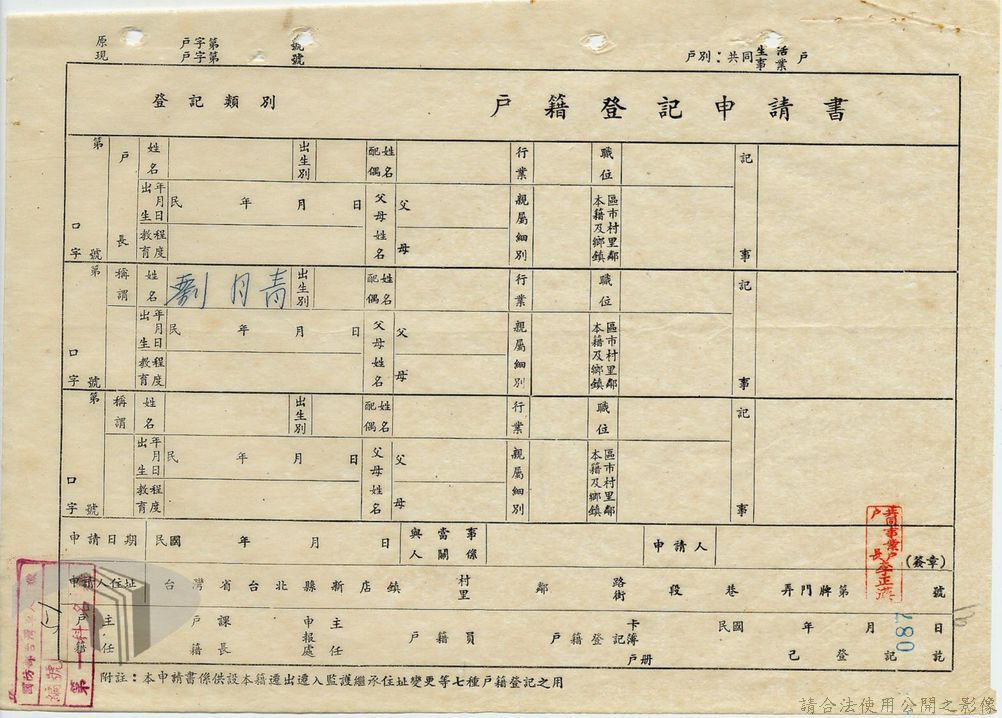 原 戶字第 號
現 戶字第 號
戶別：共同生活事業戶
登記類別 戶籍登記申請書
第 口 字 號
戶長 姓名 出生別 配偶姓名 行業 職位 記事
出生年月日 民 年 月 日 父母姓名 父 母 親屬細別 本籍及鄉鎮區市村里鄰
教育程度
第 口 字 號
稱謂 姓名 劉月青 出生別 配偶姓名 行業 職位 記事
出生年月日 民 年 月 日 父母姓名 父 母 親屬細別 本籍及鄉鎮區市村里鄰
教育程度
第 口 字 號
稱謂 姓名 出生別 配偶姓名 行業 職位 記事
出生年月日 民 年 月 日 父母姓名 父 母 親屬細別 本籍及鄉鎮區市村里鄰
教育程度
申請日期 民國 年 月 日 與當事人關係 申請人 (簽章)
共同事業戶戶長李正漢
申請人住址 台灣省台北縣新店鎮 村里 鄰 路街 段 巷 弄門牌第 號
戶籍主任 戶籍課長 申報處主任 戶籍員 戶籍登記卡簿戶冊 民國 年 月 日 已登記訖
087
編號
第一科名
附註：本申請書係供設本籍遷出遷入監護繼承住址變更等七種戶籍登記之用
請合法使用公開之影像